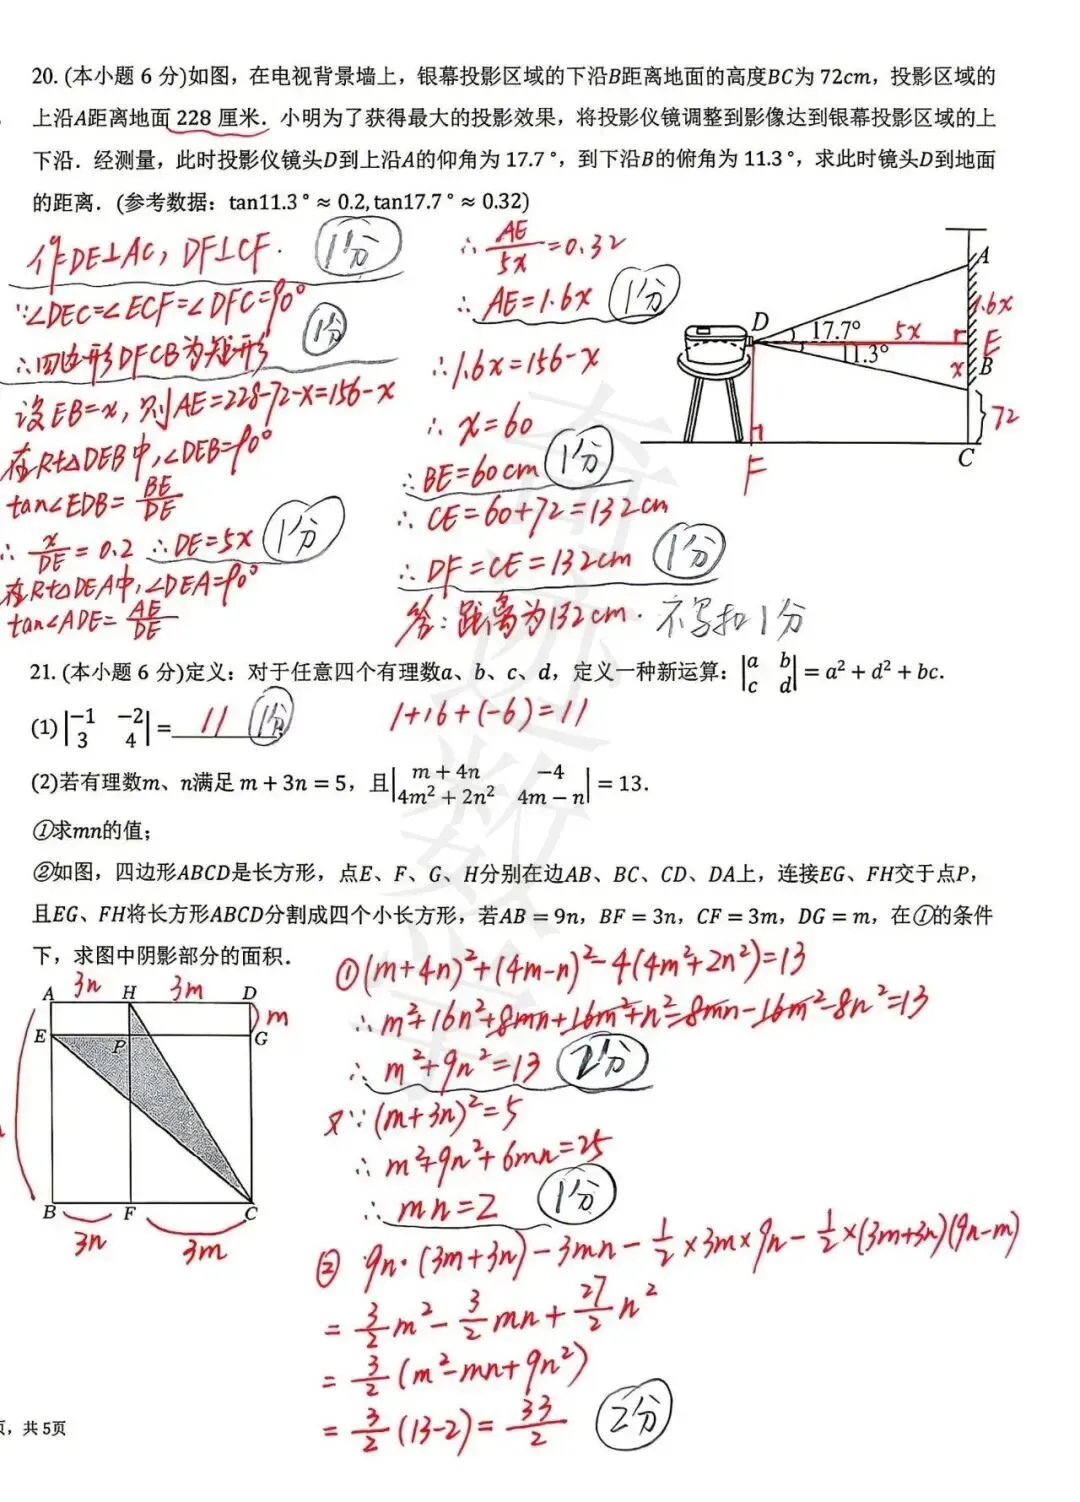 20. (本小题 6 分)如图，在电视背景墙上，银幕投影区域的下沿B距离地面的高度BC为 72cm，投影区域的
上沿A距离地面 228 厘米．小明为了获得最大的投影效果，将投影仪镜调整到影像达到银幕投影区域的上
下沿．经测量，此时投影仪镜头D到上沿A的仰角为 17.7 °，到下沿B的俯角为 11.3 °，求此时镜头D到地面
的距离．(参考数据：tan11.3 ° ≈ 0.2, tan17.7 ° ≈ 0.32)
作DE⊥AC，DF⊥CF． 1分
∵∠DEC=∠ECF=∠DFC=90°
1分
∴四边形DFCB为矩形
设EB=x，则AE=228-72-x=156-x
在Rt△DEB中，∠DEB=90°
tan∠EDB= BE/DE
∴ x/DE = 0.2 ∴DE=5x 1分
在Rt△DEA中，∠DEA=90°
tan∠ADE= AE/DE
∴ AE/5x =0.32
∴ AE=1.6x 1分
∴1.6x=156-x
∴ x=60
∴BE=60cm 1分
∴ CE=60+72=132cm
∴ DF=CE=132cm 1分
答：距离为132cm． 不写扣1分
A
1.6x
D
17.7°
5x
E
1.3°
x
B
72
F
C
21. (本小题 6 分)定义：对于任意四个有理数a、b、c、d，定义一种新运算：|a b c d| = a² + d² + bc．
(1) |−1 −2 3 4| = 11 1分
1+16+(-6)=11
(2)若有理数m、n满足 m + 3n = 5，且|m + 4n −4 4m² + 2n² 4m − n| = 13．
①求mn的值；
②如图，四边形ABCD是长方形，点E、F、G、H分别在边AB、BC、CD、DA上，连接EG、FH交于点P，
且EG、FH将长方形ABCD分割成四个小长方形，若AB = 9n，BF = 3n，CF = 3m，DG = m，在①的条件
下，求图中阴影部分的面积．
3n 3m
A H D
m
E P G
B F C
3n 3m
①(m+4n)²+(4m-n)²-4(4m²+2n²)=13
∴ m²+16n²+8mn+16m²+n²-8mn-16m²-8n²=13
∴ m²+9n²=13 2分
又∵(m+3n)²=5
∴ m²+9n²+6mn=25
∴ mn=2 1分
② 9n·(3m+3n)-3mn-1/2×3m×9n-1/2×(3m+3n)(9n-m)
= 3/2 m²- 3/2 mn+ 27/2 n²
= 3/2 (m²-mn+9n²)
= 3/2 (13-2)= 33/2 2分
页，共 5页
奇迹数学